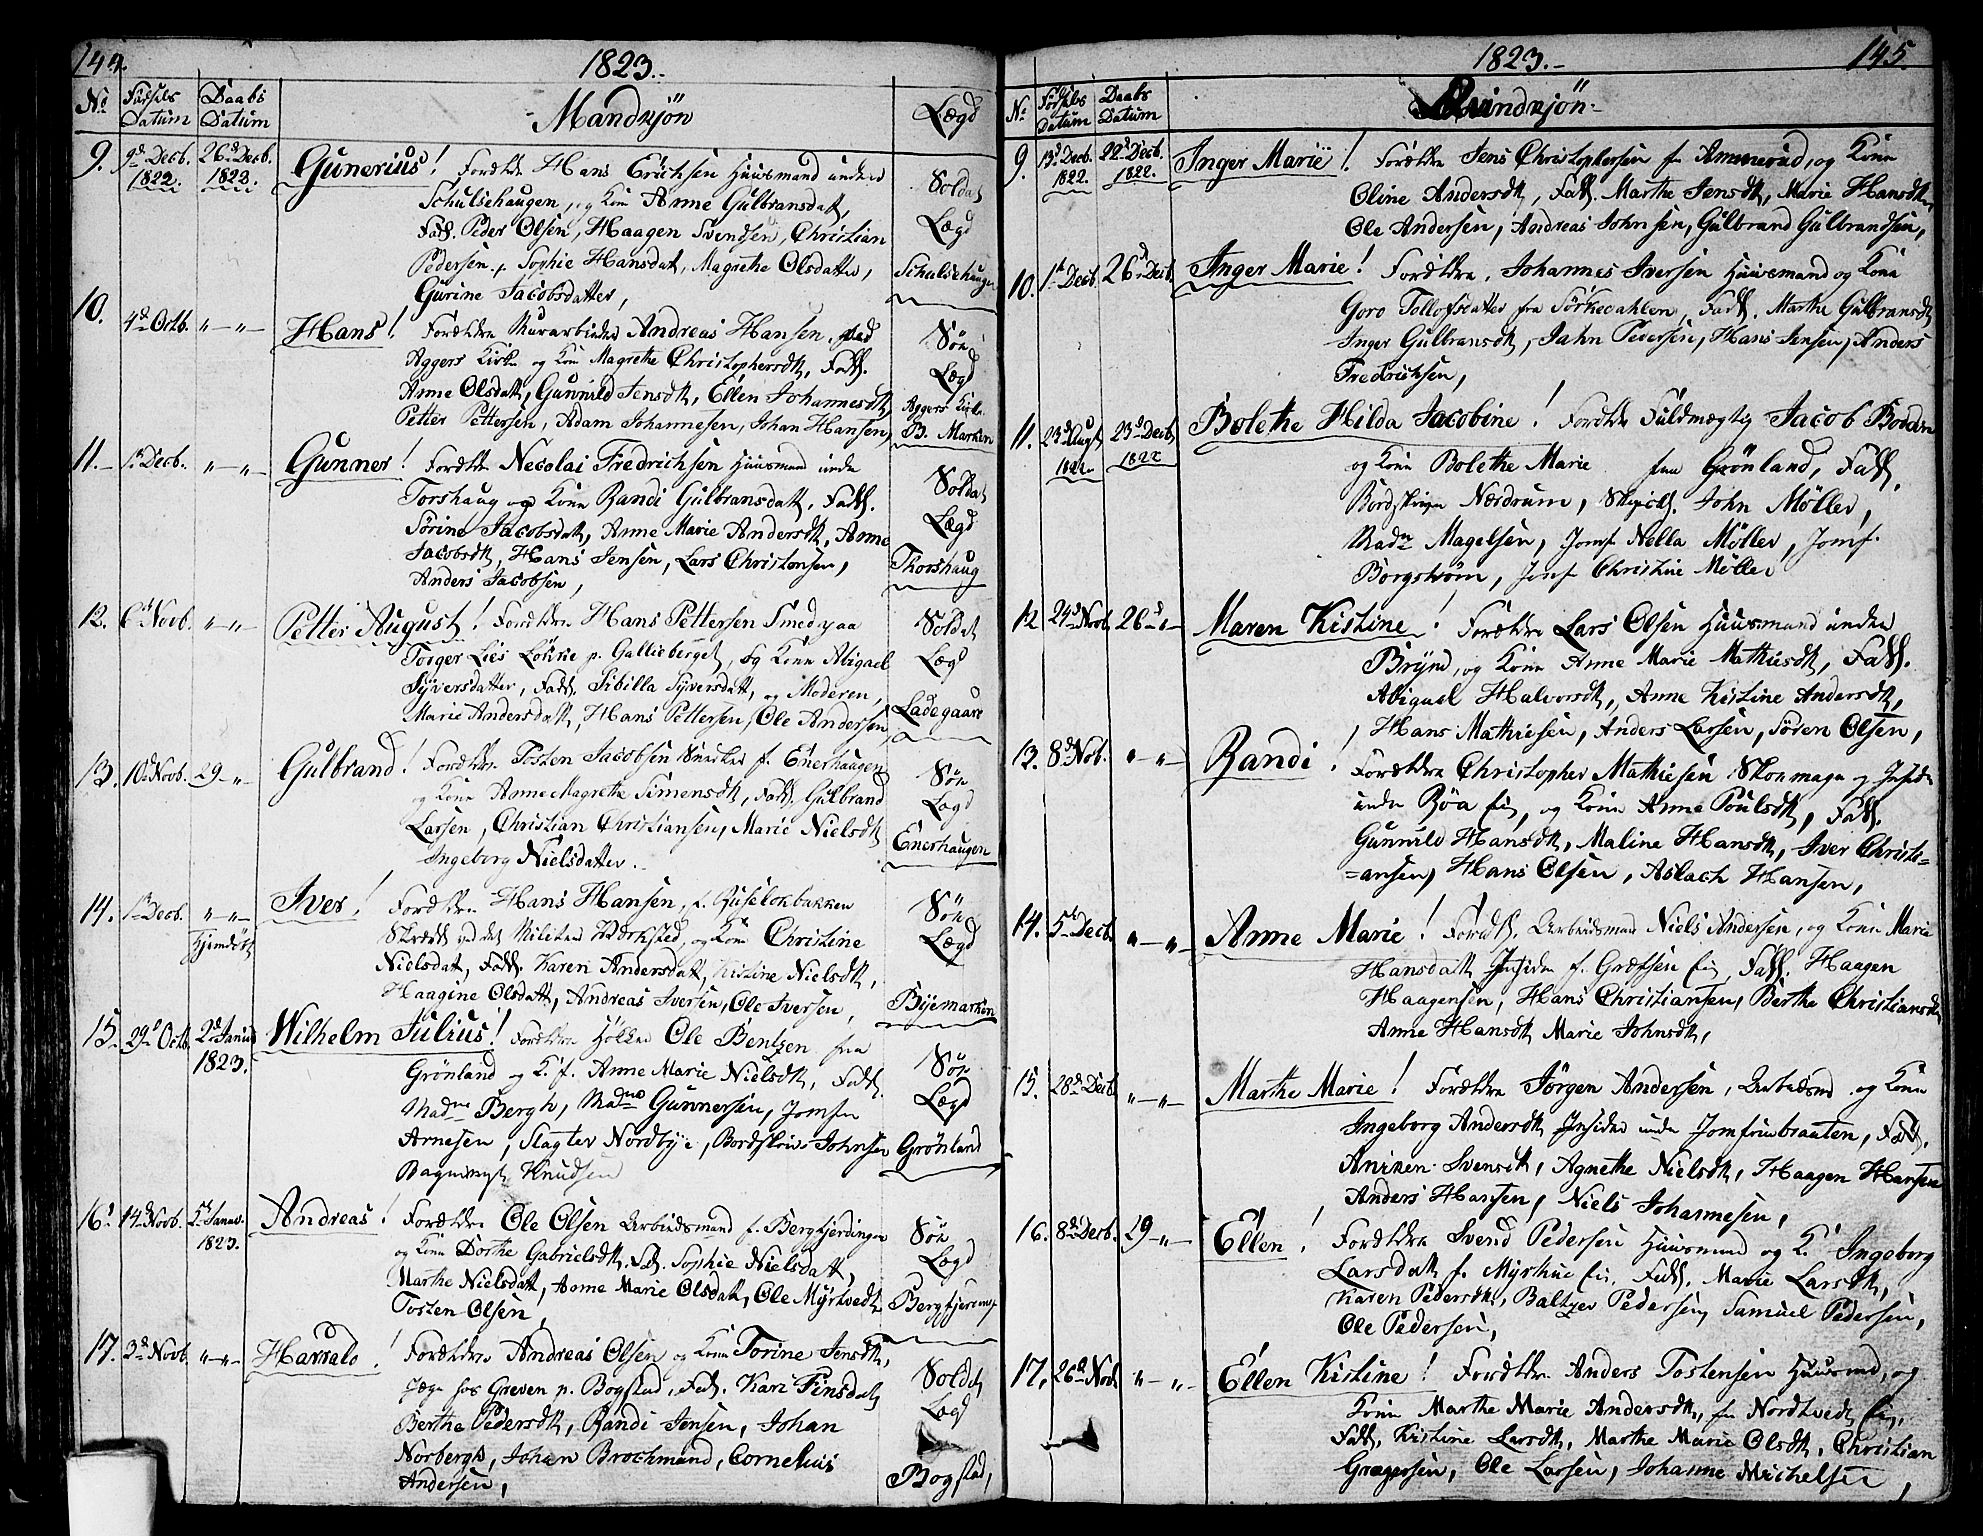 144.
1823.
No
Fødsels Datum
Daabs Datum
Mandkjön
Lægd
9. 9d Decb. 1822. 26d Decb. 1823. Gunerius! Forældre Hans Erichsen Huusmand under
Schulsehaugen, og Kone Anne Gulbransdatt,
Fadd. Peder Olsen, Haagen Svendsen, Christian
Pedersen, Sophie Hansdat, Magrethe Olsdatter,
Gurine Jacobsdatter,
Soldat Lægd Schulsehaugen
10. 4d Octb. " — " — Hans! Forældre Murarbeider Andreas Hansen, ved
Aggers Kirke og Kone Magrethe Christophersdt, Fadd.
Anne Olsdatt, Gunnild Jensdt, Ellen Johannesdt,
Petter Pettersen, Adam Johannesen, Johan Hansen,
Söe Lægd Aggers Kirke B. Marken
11. 1d Decb. " — " — Gunner! Forældre Necolai Fredrichsen Huusmand under
Torshaug og Kone Randi Gulbransdatt, Fadd.
Sörine Jacobsdatt, Anne Marie Andersdt, Anne
Jacobsdt, Hans Jensen, Lars Christensen,
Anders Jacobsen,
Soldat Lægd Thorshaug
12. Novb. " — " — Petter August! Forældre Hans Pettersen Smed paa
Torger Lies Løkke p. Gallieberget, og Kone Abigael
Syversdatter, Fadd. Sibilla Syversdatt, og Moderen,
Marie Andersdatt, Hans Pettersen, Ole Andersen,
Soldat Lægd Ladegaard
13. 10d Novb. 29 — " — Gulbrand! Forældre Tosten Jacobsen Snedker f. Enerhaugen
og Kone Anne Magrethe Simensdt, Fadd. Gulbrand
Larsen, Christian Christiansen, Marie Nielsdt
Ingeborg Nielsdatter.
Söe Lægd Enerhaugen
14. 1d Decb. " — " — Hjemdöbt Iver! Forældre Hans Hansen, f. Ruselökbakken
Skrædd ved det Militær Værksted, og Kone Christine
Nielsdat, Fadd. Karen Andersdatt, Kistine Nielsdt,
Haagine Olsdatt, Andreas Iversen, Ole Iversen,
Söe Lægd Bijemarken
15. 29d Octb. 2d Januar 1823. Wilhelm Julius! Forældre Høker Ole Bentzen fra
Grönland og K. f. Anne Marie Nielsdt, Fadd.
Madme Bergh, Madme Gunnersen, Jomfru
Arnesen, Slagter Nordbye, Bordskriver Johnsen
Knudsen
Söe Lægd Grönland
16. 14d Novb. 5d Januar. 1823. Andreas! Forældre Ole Olsen Arbeidsmand f. Bergfjerdingen
og Kone Dorthe Gabrielsdt. Fad. Sophie Nielsdatt,
Marthe Nielsdatt, Anne Marie Olsdatt, Ole Myrtvedt,
Tosten Olsen,
Söe Lægd
17. 3d Novb. " — " — Harrald! Forældre Andreas Olsen og Kone Torine Jensdt,
hos Greven p. Bogstad, Fadd. Kari Finsdat,
Berthe Pedersdt, Randi Jensen, Johan
Norbergh, Johan Brochmand, Cornelius
Andersen,
Soldat Lægd Bogstad,
1823.
145.
No
Fødsels Datum
Daabs Datum
Qvindkjön
9. 13d Decb. 1822. 22d Decb. 1822. Inger Marie! Forældre Jens Christophersen fr Ammerud, og Kone
Oline Andersdt, Fadd. Marthe Jensdt, Marie Hansdt,
Ole Andersen, Andreas Johnsen, Gulbrand Gulbrandsen,
10. 1d Decb. 26d Decb. Inger Marie! Forældre, Johannes Iversen Huusmand og Kone
Goro Tollofsdatter fra Sörkedahlen, Fadd. Marthe Gulbransdt
Inger Gulbransdt, Jahn Pedersen, Hans Jensen, Anders
Fredrichsen,
11. 23d Augst 1822 23d Decb. 1822 Bolethe Hilda Jacobine! Forældre Fuldmægtig Jacob
og Kone Bolethe Marie fra Grönland, Fadd.
Bordskriver Nordrum, Skipcdt. John Möller,
Madme Magelsen, Jomf. Nella Möller, Jomf.
Borgström, Jomf Christine Möller
12. 24d Novb. 26d — " — Maren Kistine! Forældre Lars Olsen Huusmand under
Brynd, og Kone Anne Marie Mathisdt, Fadd.
Abigael Halvorsdt, Anne Kistine Andersdt,
Hans Mathiesen, Anders Larsen, Sören Olsen,
13. 8d Novb. " — " — Randi! Forældre Christopher Mathiesen Skomager og Inside
under Röa Eie, og Kone Anne Poulsdt, Fadd.
Gunnild Hansdt, Maline Hansdt, Iver Christi=
=ansen, Hans Olsen, Aslach Hansen,
14. 5d Decb. " — " — Anne Marie! Foræld. Arbeidsmand Niels Andersen, og Kone Marie
Hansdatt Insider f. Græfsen Eie, Fadd. Haagen
Haagensen, Hans Christiansen, Berthe Christiansdt
Anne Hansdt Marie Johnsdt,
15. 28d Decb. " — " — Marthe Marie! Forældre Jörgen Andersen, Arbeidsmd og Kone
Ingeborg Andersdt Insider under Jomfrubraaten, Fadd.
Aniken Svensdt, Agnethe Nielsdt, Haagen Hansen
Anders Hansen, Niels Johannesen,
16. 8d Decb. 29 — " — Ellen! Forældre Svend Pedersen Huusmand og K. Ingeborg
Larsdatt f. Eie, Fadd. Marie Larsdt,
Karen Pedersdt, Baltzer Pedersen, Samuel Pedersen,
Ole Pedersen,
17. 26d Novb. " — " — Ellen Kistine! Forældre Anders Tostensen Huusmd, og
Kone Marthe Marie Andersdt, fra Nordtvedt Eie,
Fadd. Kistine Larsdt, Marthe Marie Olsdt, Christian
Gregersen, Ole Larsen, Johanne Michelsen,